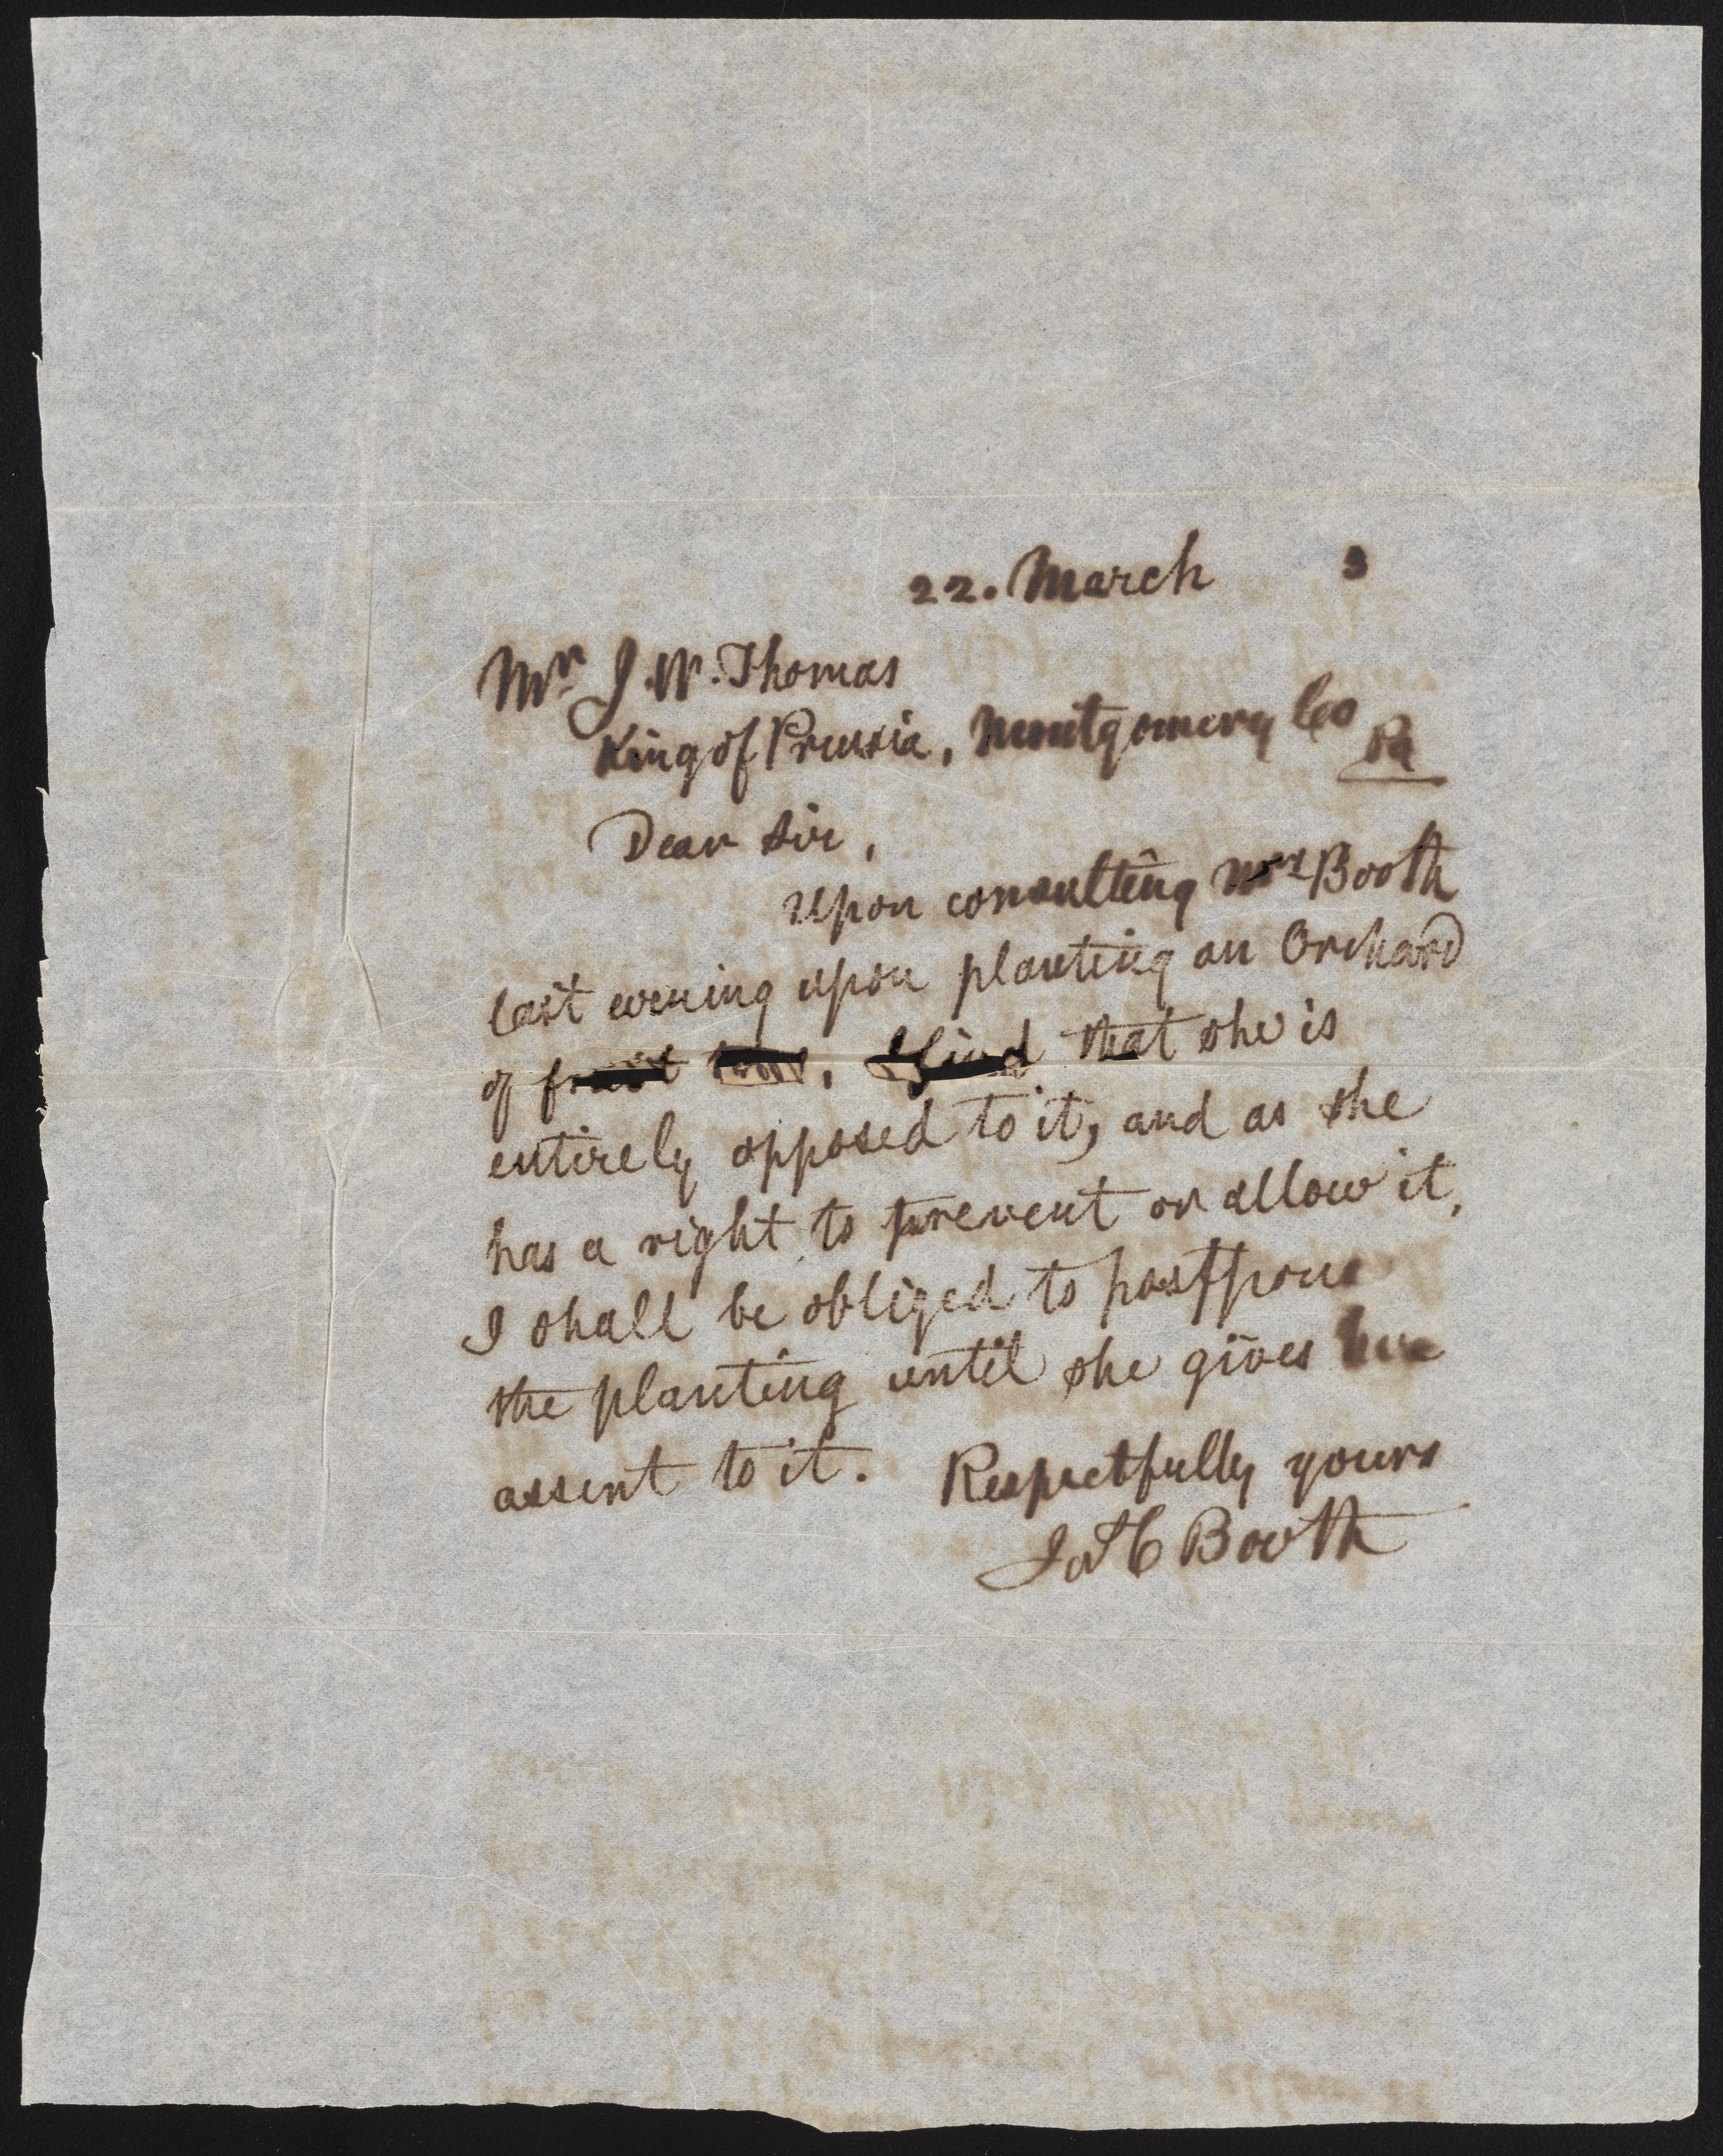 22. March 3
Mr. J. W. Thomas
King of Prussia, Montgomery Co
Pa
Dear Sir,
Upon consulting Mrs Booth
last evening upon planting an Orchard
of fruit trees, I find that she is
entirely opposed to it, and as she
has a right to prevent or allow it,
I shall be obliged to postpone
the planting until she gives her
assent to it. Respectfully yours
Jas C Booth